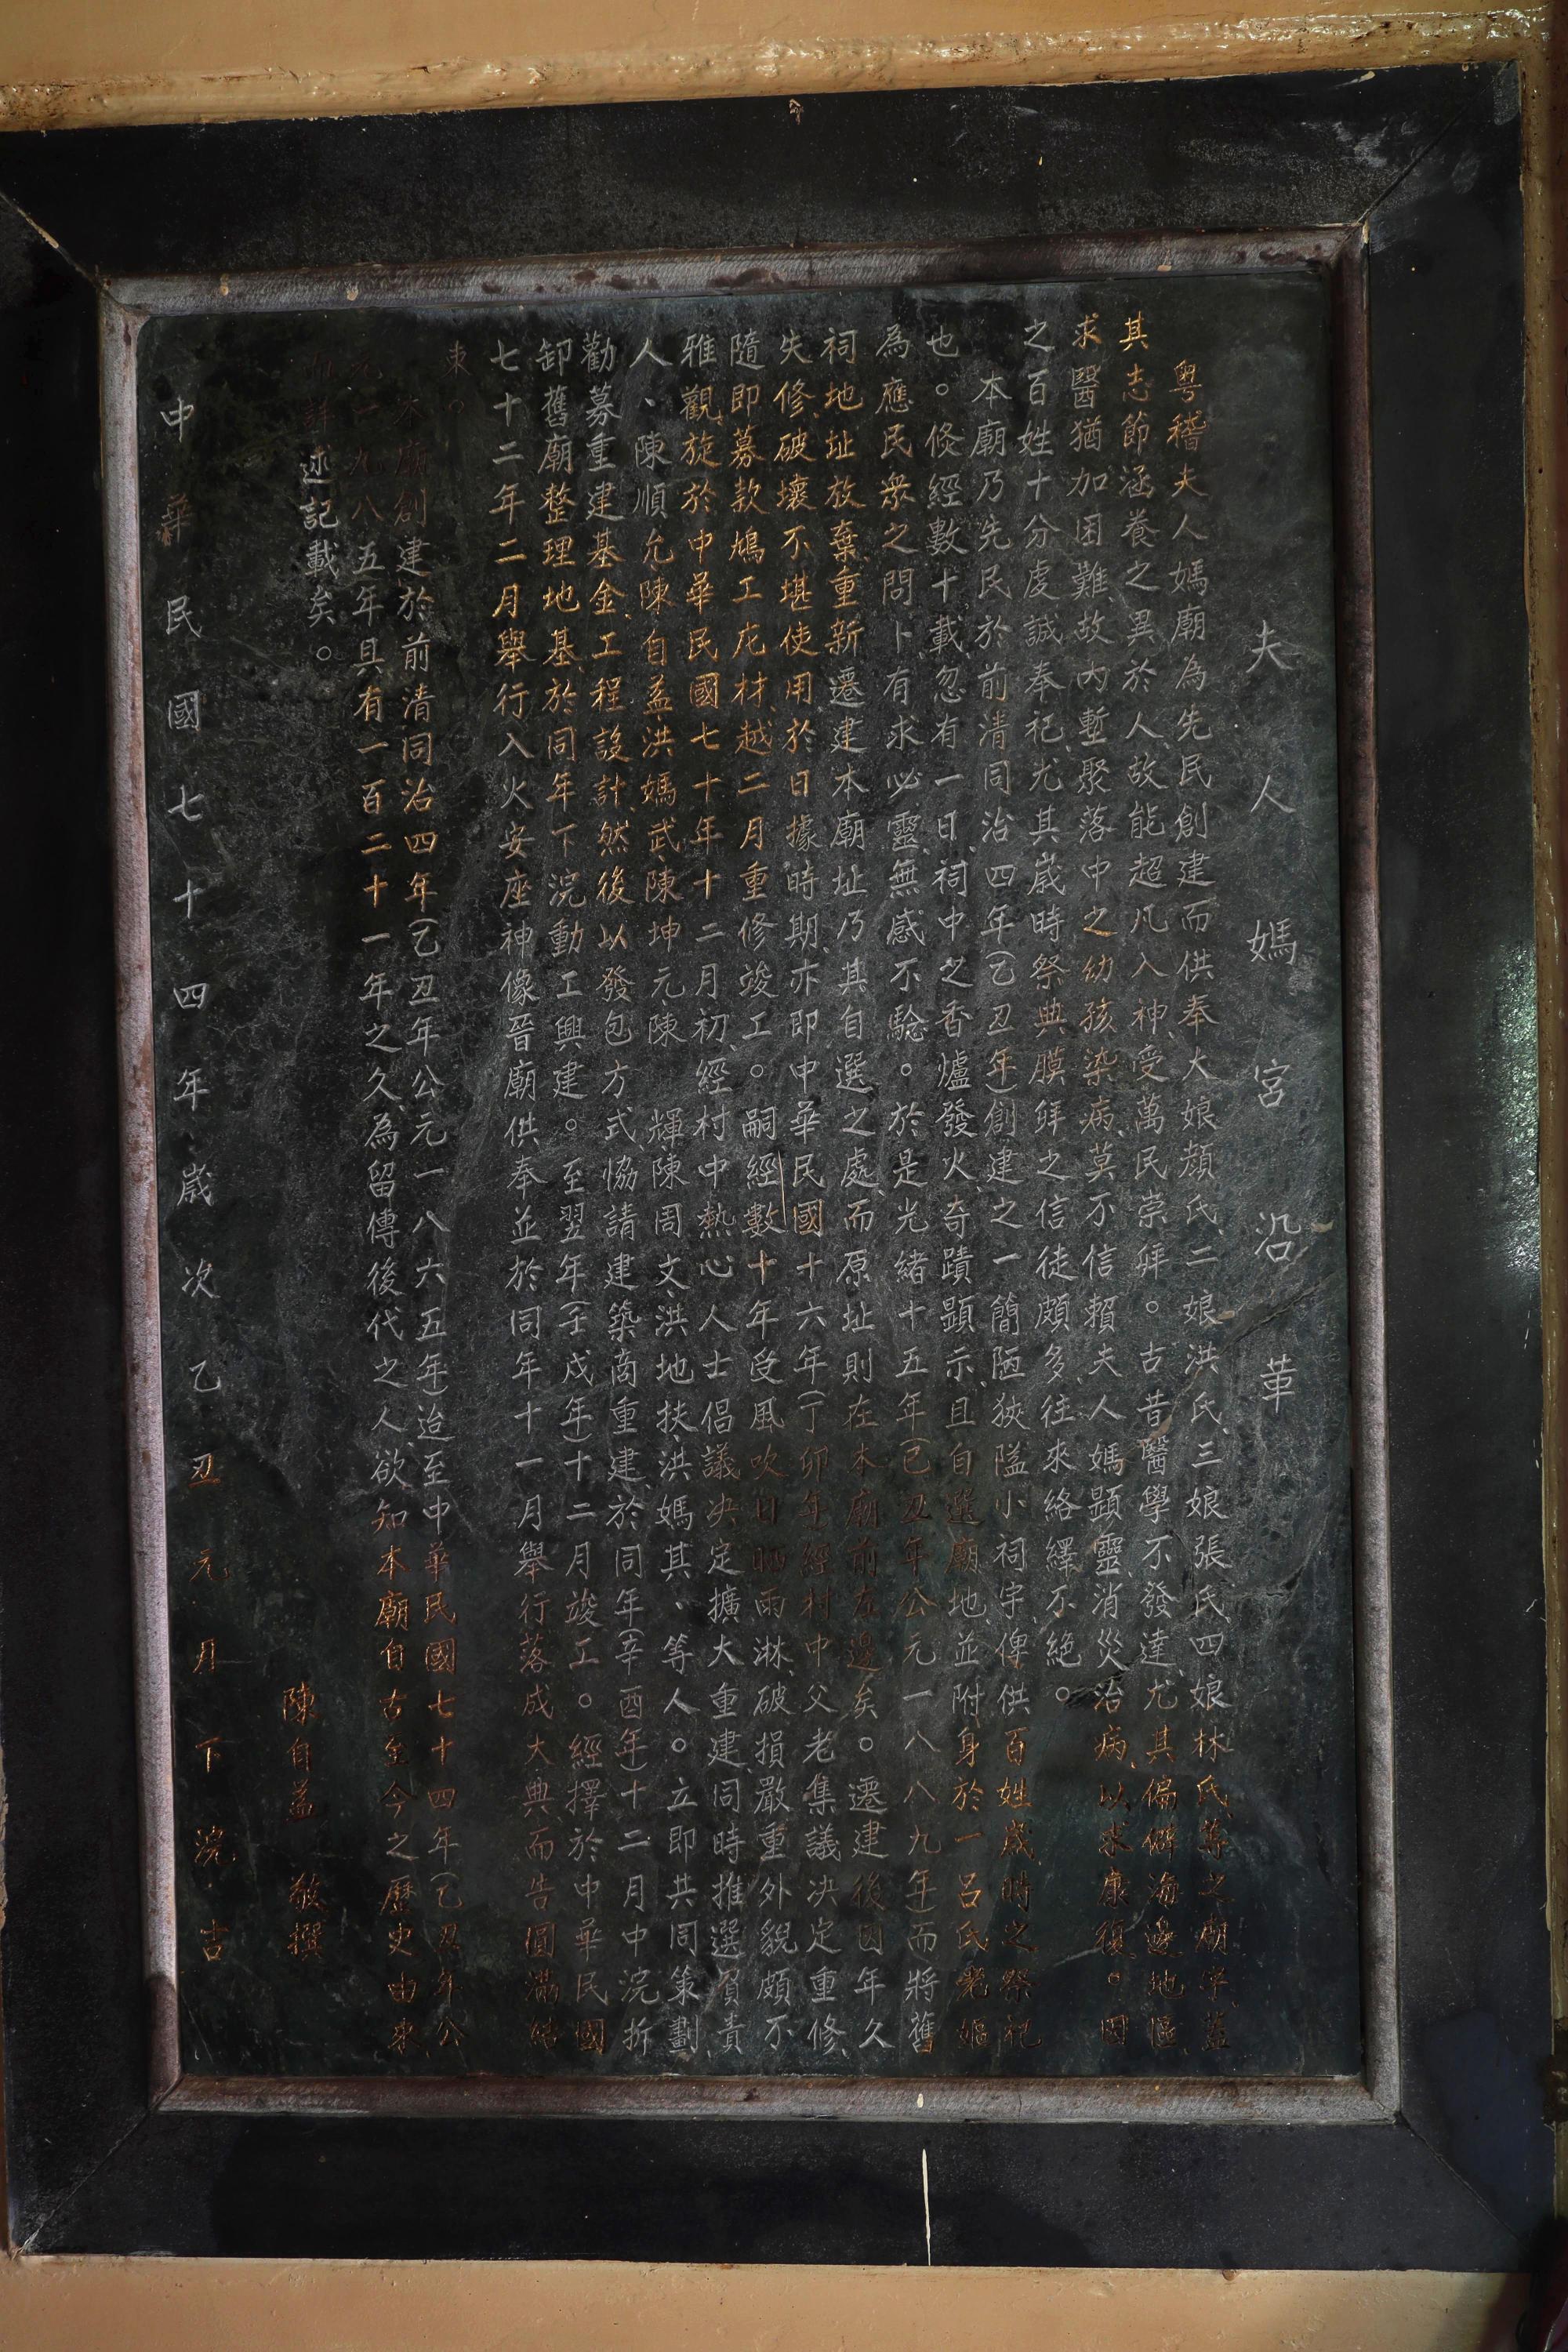 夫人媽宮沿革
粵稽夫人媽廟為先民創建而供奉大娘顏氏、二娘洪氏、三娘張氏四娘林氏等之廟宇、蓋
其志節涵養之異於人、故能超凡入神、受萬民崇拜。古昔醫學不發達、尤其偏僻海邊地區、
求醫猶加困難、故內塹聚落中之幼孩染病、莫不信賴夫人媽顯靈消災治病、以求康復。因
之百姓十分虔誠奉祀、尤其歲時祭典膜拜之信徒頗多、往來絡繹不絕。
本廟乃先民於前清同治四年(乙丑年)創建之一簡陋狹隘小祠宇、俾供百姓歲時之祭祀
也。倏經數十載、忽有一日、祠中之香爐發火、奇蹟顯示、且自選廟地、並附身於一呂氏老嫗
為應民眾之問卜、有求必靈、無感不驗。於是光緒十五年(己丑年公元一八八九年)而將舊
祠地址放棄重新遷建本廟址乃其自選之處、而原址則在本廟前左邊矣。遷建後因年久
失修、破壞不堪使用於日據時期、亦即中華民國十六年(丁卯年)經村中父老集議決定重修、
隨即募款鳩工庀材、越二月重修竣工。嗣經數十年受風吹日晒雨淋、破損嚴重外貌頗不
雅觀、旋於中華民國七十年十二月初、經村中熱心人士倡議決定擴大重建、同時推選負責
人、陳順允陳自益洪媽武、陳坤元、陳 輝陳周文、洪地扶、洪媽其、等人。立即共同策劃、
勸募重建基金、工程設計、然後以發包方式、協請建築商重建、於同年(辛酉年)十二月中浣折
卸舊廟整理地基、於同年下浣動工興建。至翌年(壬戌年)十二月竣工。經擇於中華民國
七十二年二月舉行入火安座神像晉廟供奉並於同年十一月舉行落成大典而告圓滿結
束。
本廟創建於前清同治四年(乙丑年公元一八六五年)迨至中華民國七十四年(乙丑年公
元一九八五年具有一百二十一年之久、為留傳後代之人、欲知本廟自古至今之歷史由來、
而詳述記載矣。
陳自益 敬撰
中華民國七十四年歲次乙丑元月下浣吉